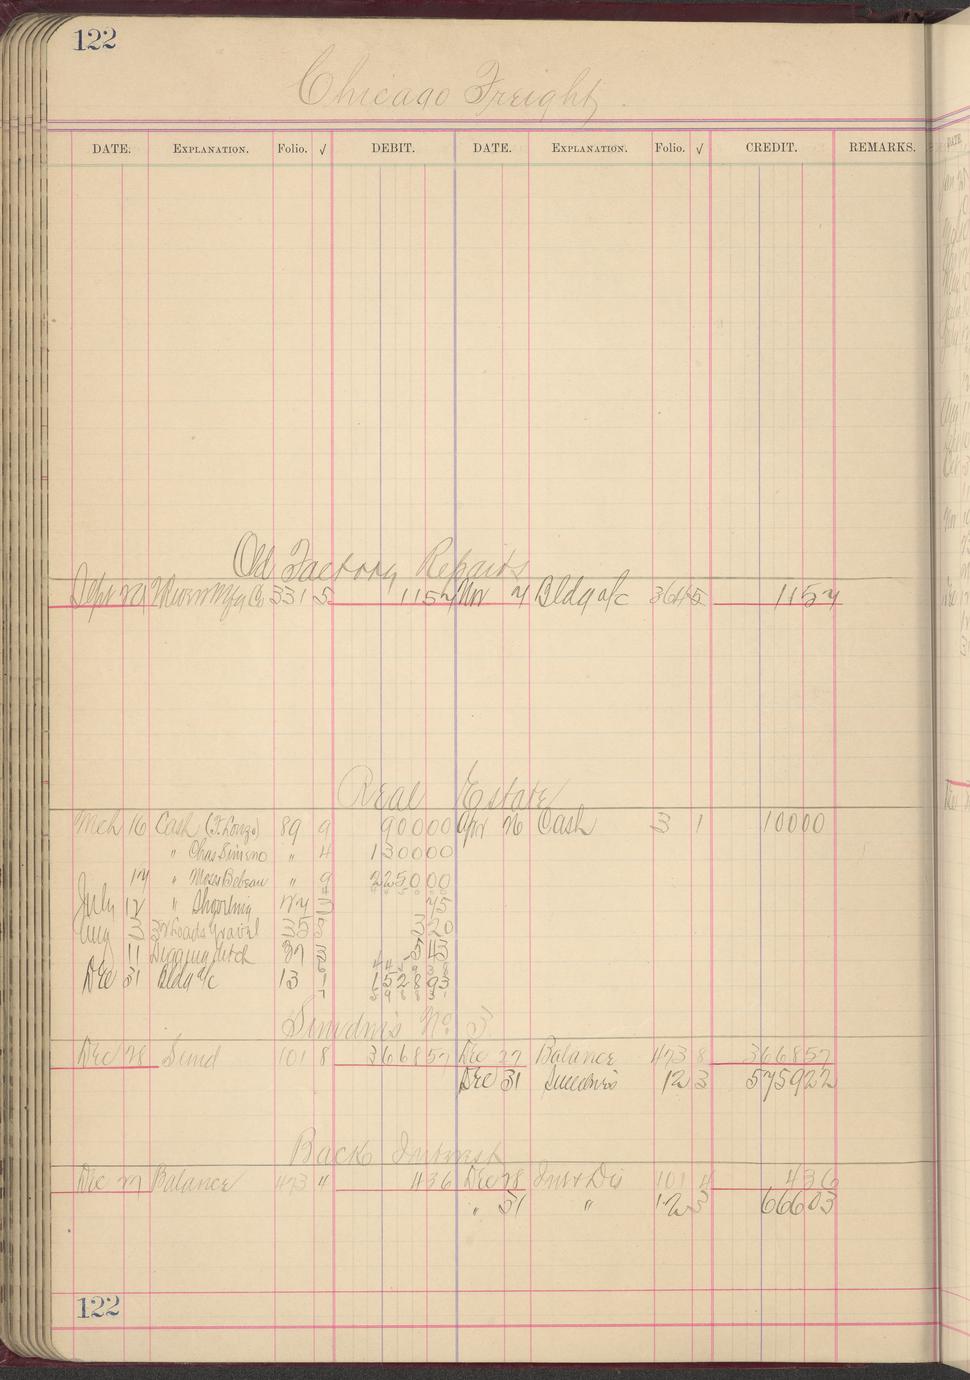 122
Chicago Freight.
DATE. EXPLANATION. Folio. √ DEBIT. DATE. EXPLANATION. Folio. √ CREDIT. REMARKS.
Old Factory Repairs
Sept Mfg Co 331 5 1157 Nov 7 Bldg a/c 364 5 1157
Real Estate
Mch 16 Cash 89 9 90000 Apr 26 Cash 3 1 10000
" Chas Simeno " 4 130000
17 " Moses Bebeau " 9 225000
July 12 " 75
Aug 3 Loads Gravel 355 320
11 Digging ditch 37 543
Dec 31 Bldg a/c 13 1 152893
No 3
Dec 28 Sund 101 8 366857 Dec 27 Balance 473 8 366857
Dec 31 12 3 575922
Back Interest
Dec 27 Balance 473 " 436 Dec 28 Int & Dis 101 4 436
" 31 " 12 3 66603
122